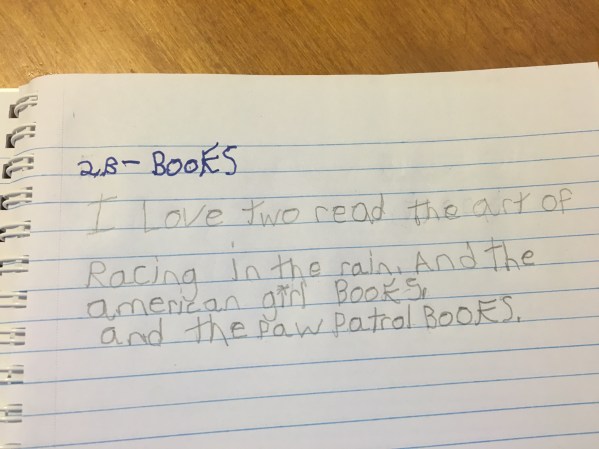 2,B- BOOKS
I Love two read the art of
Racing in the rain. And the
american girl BOOKS,
and the Paw Patrol BOOKS.